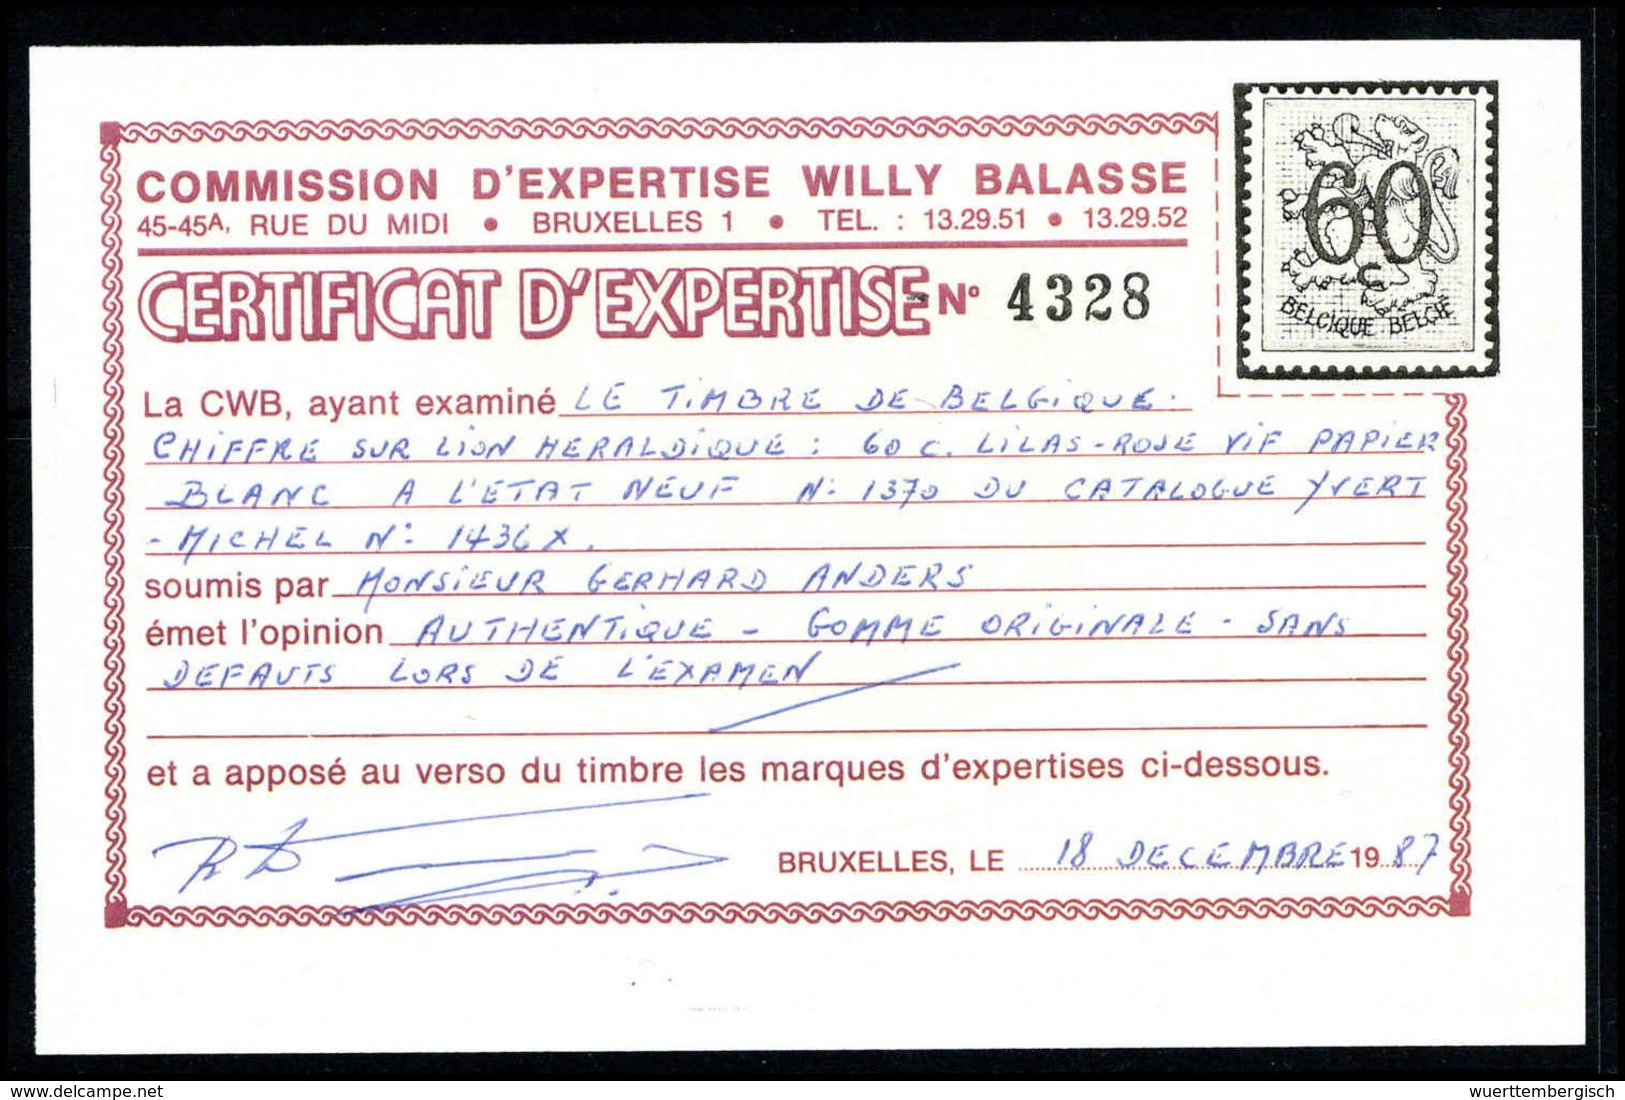 COMMISSION D'EXPERTISE WILLY BALASSE
45-45A, RUE DU MIDI • BRUXELLES 1 • TEL. : 13.29.51 • 13.29.52
CERTIFICAT D'EXPERTISE N° 4328
60
C
BELGIQUE BELGIË
La CWB, ayant examiné LE TIMBRE DE BELGIQUE.
CHIFFRE SUR LION HERALDIQUE : 60 C. LILAS-ROSE VIF PAPIER
BLANC A L'ETAT NEUF N° 1370 DU CATALOGUE YVERT
- MICHEL N° 1436 X.
soumis par MONSIEUR GERHARD ANDERS
émet l'opinion AUTHENTIQUE - GOMME ORIGINALE - SANS
DEFAUTS LORS DE L'EXAMEN
et a apposé au verso du timbre les marques d'expertises ci-dessous.
BRUXELLES, LE 18 DECEMBRE 1987
delcampe.net
wuerttembergisch